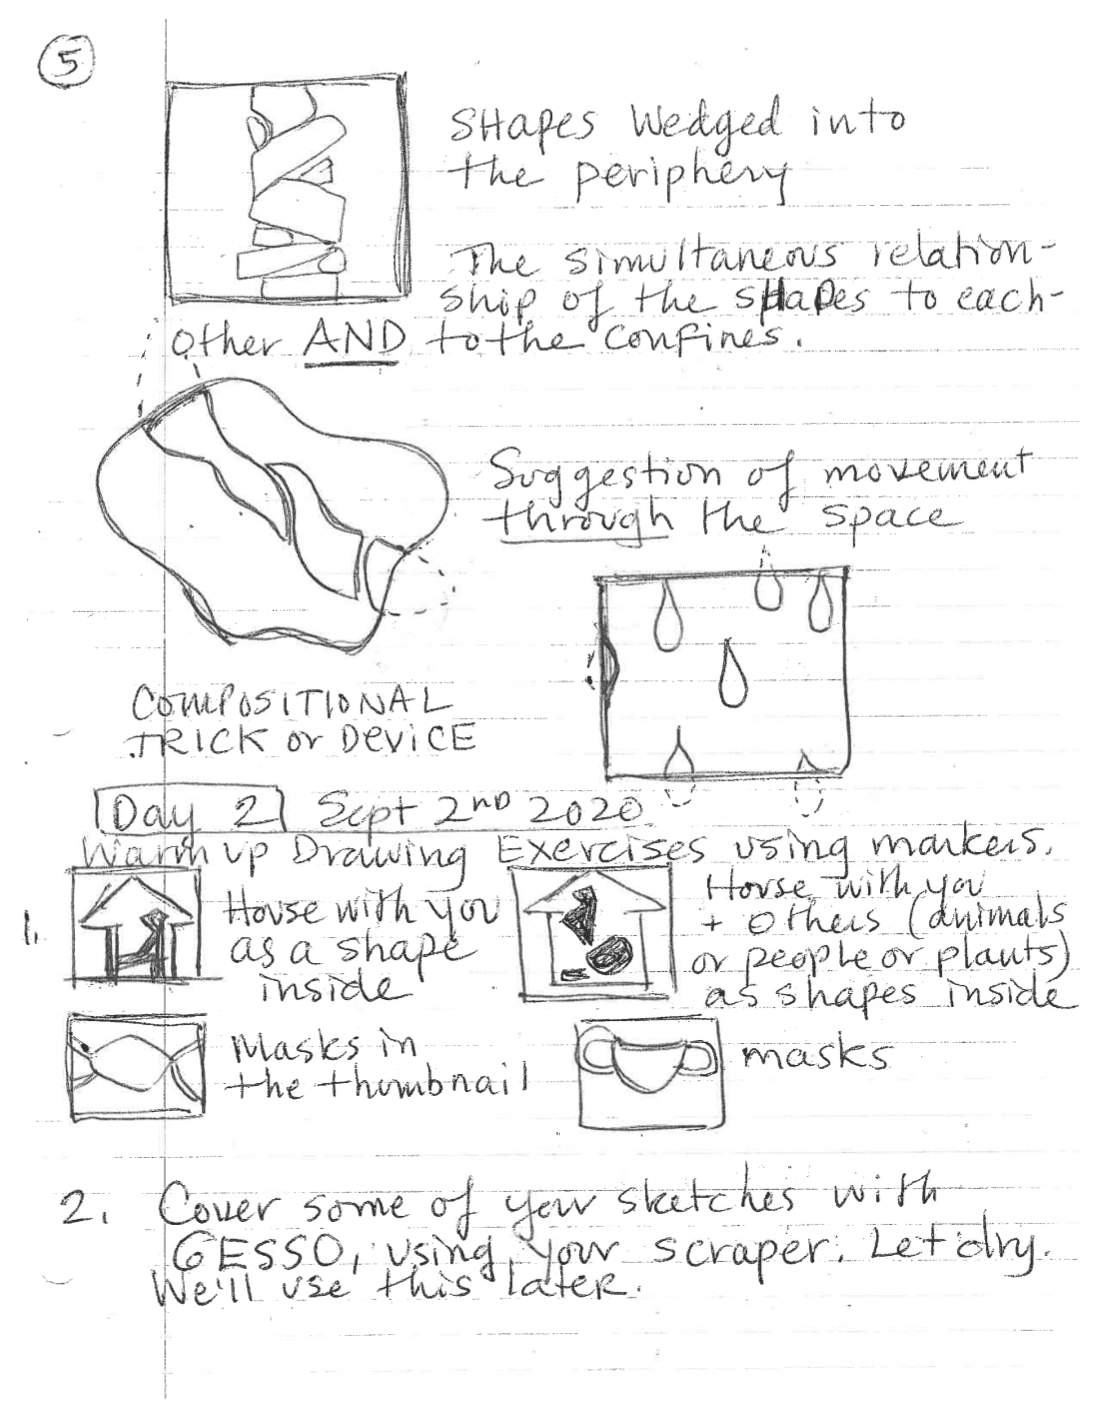 5
SHapes Wedged into
the periphery
The simultaneous relation-
ship of the SHaPes to each-
other AND to the confines.
Suggestion of movement
through the space
COMPOSITIONAL
TRICK or DEVICE
Day 2 Sept 2ND 2020
Warm up Drawing Exercises using markers.
1.
House with you
as a shape
inside
House with you
+ others (animals
or people or plants)
as shapes inside
Masks in
the thumbnail
masks
2. Cover some of your sketches with
GESSO, using your scraper. Let dry.
We'll use this later.